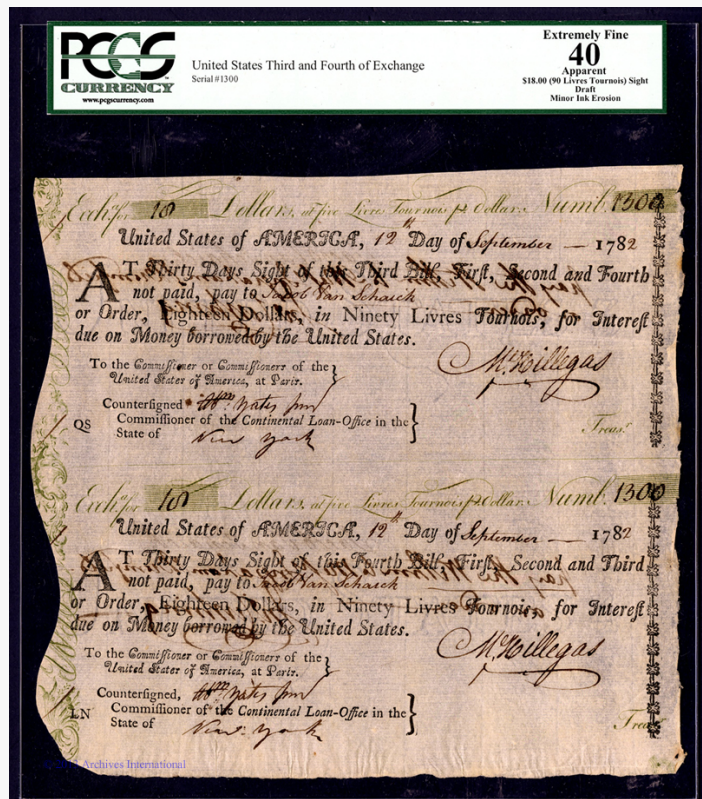 PCGS
CURRENCY
www.pcgscurrency.com
United States Third and Fourth of Exchange
Serial #1300
Extremely Fine
40
Apparent
$18.00 (90 Livres Tournois) Sight
Draft
Minor Ink Erosion
Exch.ᵉ for 18 Dollars, at five Livres Tournois pʳ Dollar. Numb. 1300
United States of AMERICA, 12th Day of September — 1782
AT Thirty Days Sight of this Third Bill, First, Second and Fourth
not paid, pay to Jacob Van Schaick
or Order, Eighteen Dollars, in Ninety Livres Tournois, for Interest
due on Money borrowed by the United States.
To the Commissioner or Commissioners of the }
United States of America, at Paris.
M. Hillegas
Countersigned Abm. Yates Junr
QS Commissioner of the Continental Loan-Office in the }
State of New York
Treasʳ
Exch.ᵉ for 18 Dollars, at five Livres Tournois pʳ Dollar. Numb. 1300
United States of AMERICA, 12th Day of September — 1782
AT Thirty Days Sight of this Fourth Bill, First, Second and Third
not paid, pay to Jacob Van Schaick
or Order, Eighteen Dollars, in Ninety Livres Tournois, for Interest
due on Money borrowed by the United States.
To the Commissioner or Commissioners of the }
United States of America, at Paris.
M. Hillegas
Countersigned, Abm. Yates Junr
LN Commissioner of the Continental Loan-Office in the }
State of New York
Treasʳ
Archives International